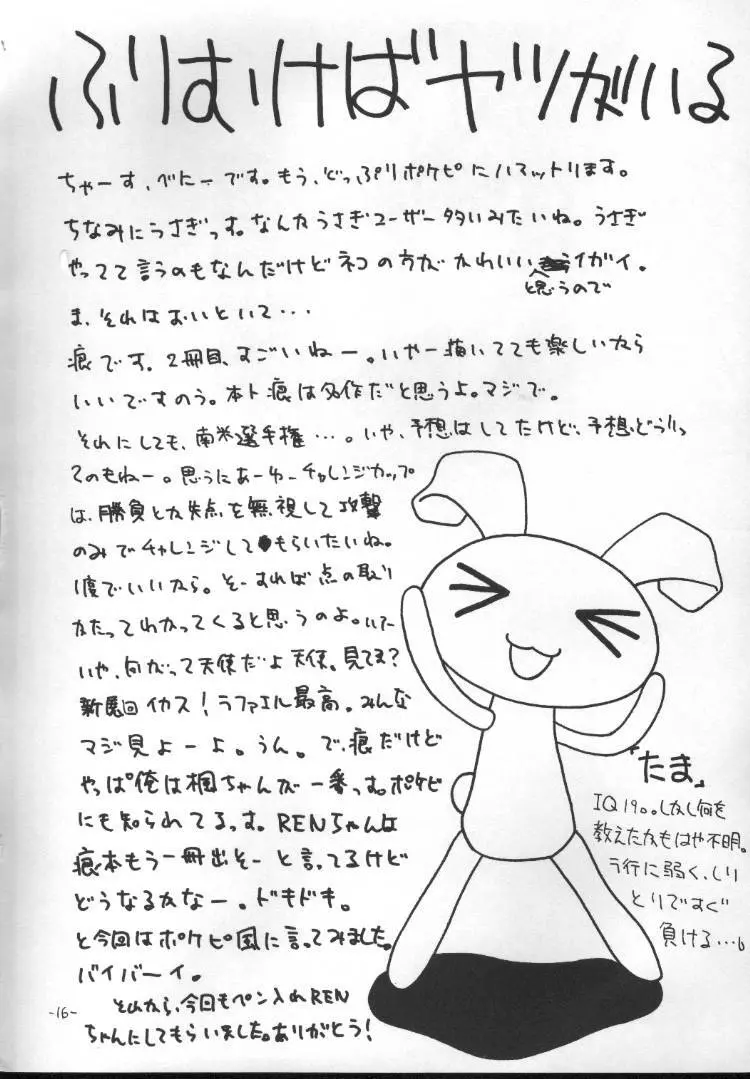 ふりむけばヤツがいる
ちゃーす、べにーです。もう、どっぷりポケピにハマットります。
ちなみにうさぎっす。なんかうさぎユーザー多いみたいね。うさぎ
やってて言うのもなんだけどネコの方がかわいい イガイ。
と思うので
ま、それはおいといて・・・
痕です。2冊目、すごいねー。いやー描いてても楽しいから
いいですのう。本ト痕は名作だと思うよ。マジで。
それにしても、南米選手権・・・。いや、予想はしてたけど、予想どうりっ
てのもねー。思うにあーゆーチャレンジカップ
は、勝負とか失点を無視して攻撃
のみでチャレンジしてもらいたいね。
1度でいいから。そーすれば点の取り
かたってわかってくると思うのよ。いてー
いや、向かって天使だよ天使。見てま?
新 イカス!ラファエル最高。みんな
マジ見よーよ。うん。で、痕だけど
やっぱ俺は楓ちゃんが一番っす。ポケピ
にも知られてるっす。RENちゃんは
痕本もう一冊出そーと言ってるけど
どうなるかなー。ドキドキ。
と今回はポケピ風に言ってみました。
バイバーイ。
それから、今回もペン入れREN
ちゃんにしてもらいました。ありがとう!
「たま」
IQ190。しかし何を
教えたかもはや不明。
ラ行に弱く、しり
とりですぐ
負ける・・・。
-16-